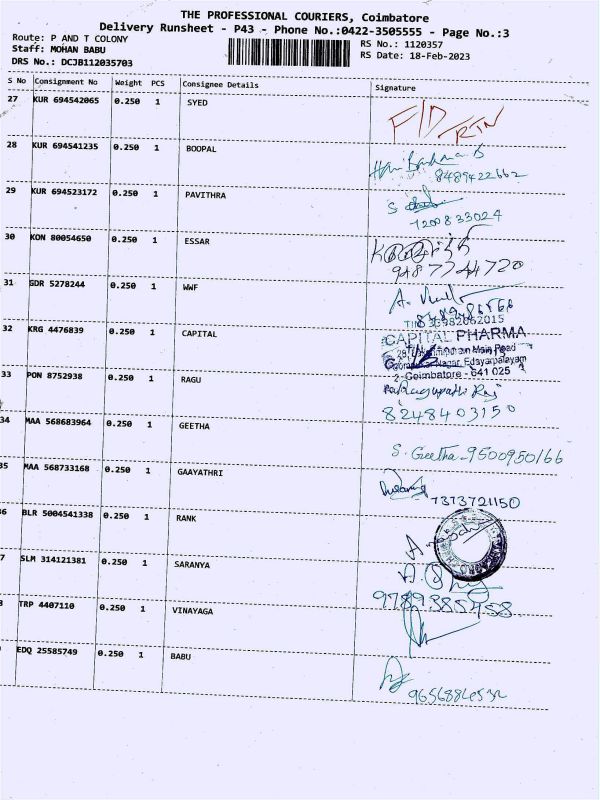 THE PROFESSIONAL COURIERS, Coimbatore
Delivery Runsheet - P43 - Phone No.:0422-3505555 - Page No.:3
Route: P AND T COLONY
Staff: MOHAN BABU
DRS No.: DCJB112035703
RS No.: 1120357
RS Date: 18-Feb-2023
S No Consignment No Weight PCS Consignee Details Signature
27 KUR 694542065 0.250 1 SYED F/D RTN
28 KUR 694541235 0.250 1 BOOPAL
8489422662
29 KUR 694523172 0.250 1 PAVITHRA S
7200833024
30 KON 80054650 0.250 1 ESSAR
9487744720
31 GDR 5278244 0.250 1 WWF A.
32 KRG 4476839 0.250 1 CAPITAL
CAPITAL PHARMA
Main Road
Nagar, Edayarpalayam
Coimbatore - 641 025
33 PON 8752938 0.250 1 RAGU Ragupathi Raj
8248403150
34 MAA 568683964 0.250 1 GEETHA S. Geetha 9500950166
35 MAA 568733168 0.250 1 GAAYATHRI
7373721150
6 BLR 5004541338 0.250 1 RANK
7 SLM 314121381 0.250 1 SARANYA
9789385458
TRP 4407110 0.250 1 VINAYAGA
EDQ 25585749 0.250 1 BABU
9656884532